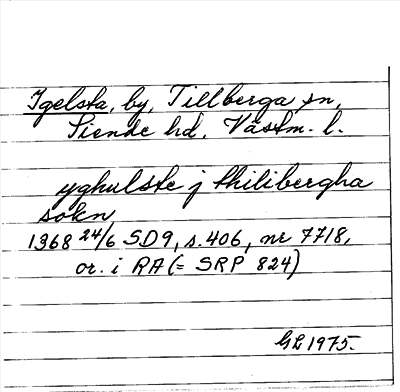 Igelsta, by, Tillberga sn,
Siende hd, Västm. l.
yghulste j thilibergha
sokn
1368 24/6 SD9, s. 406, nr 7718,
or. i RA (= SRP 824)
GL 1975.